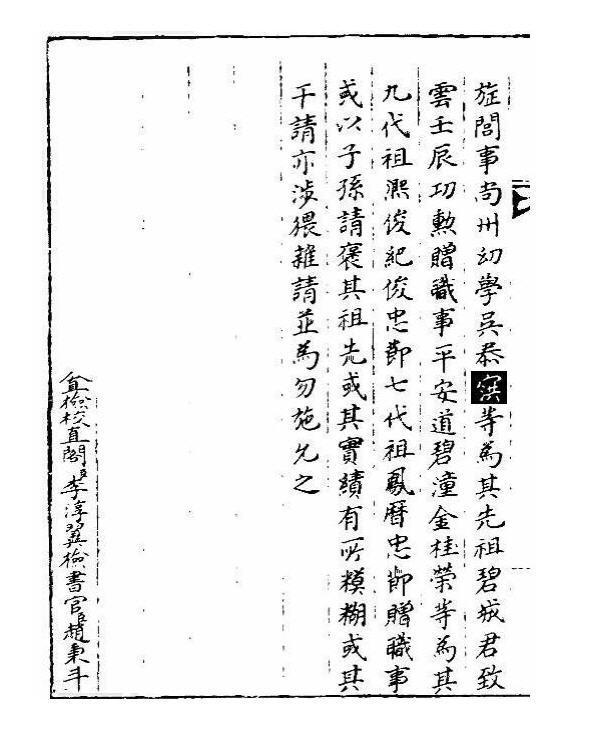 旌閭事尚州幼學吳泰等爲其先祖碧城君致
雲壬辰功勲贈職事平安道碧潼金桂榮等爲其
九代祖凞俊紀俊忠節七代祖鳳曆忠節贈職事
或以子孫請褒其祖先或其實績有所糢糊或其
干請亦涉猥雜請並爲勿施允之
兼檢校直閣臣李淳翼檢書官臣趙秉斗